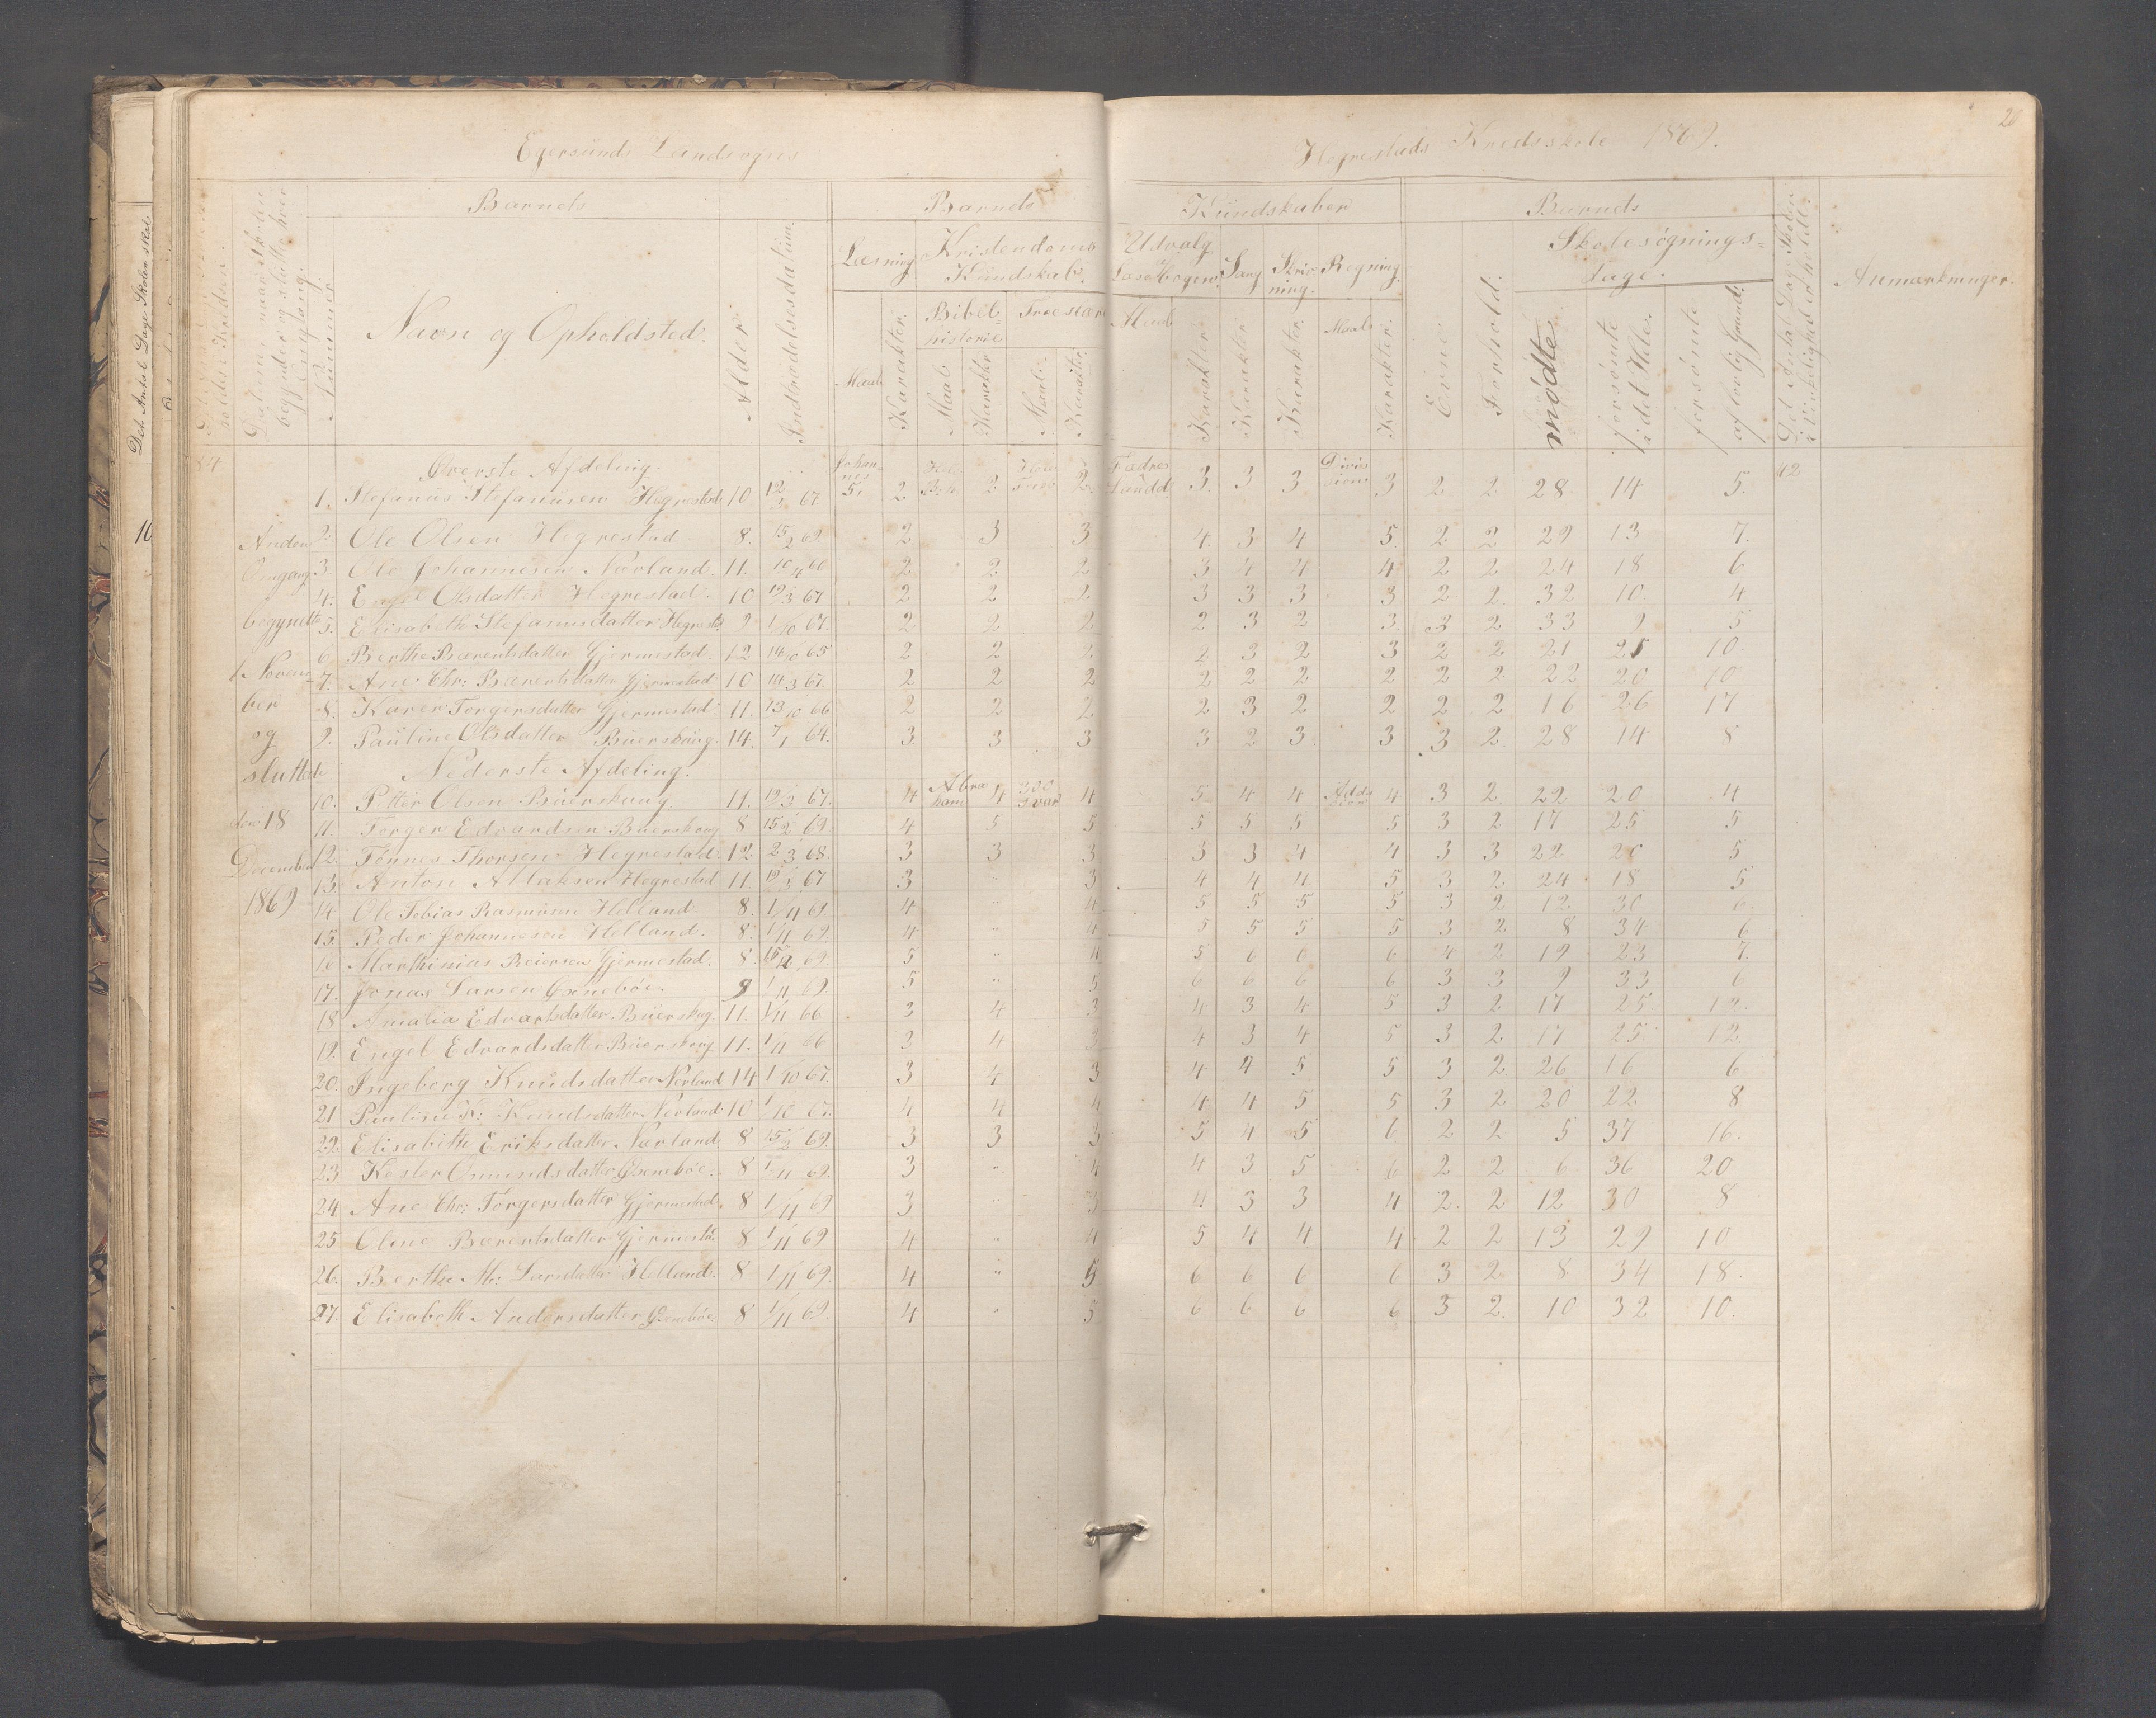 Egersunds Landsogns
Hegrestads Kredsskole 1869.
20
Barnets
Barnets
Kundskaber
Barnets
Navn og Opholdsted.
Nummer
Alder
Indtrædelsesdatum
Læsning
Kristendoms Kundskab.
Bibelhistorie
Troeslære
Maal
Karakter.
Maal
Karakter
Maal
Karakter
Udvalg Læsebogen.
Sang
Skrivning.
Regning.
Maal
Karakter
Karakter
Karakter.
Maal
Karakter.
Evne
Forhold.
Skolesøgningsdage.
mødte
forsømte i det Hele.
forsømte af lovlig Grund.
Det Antal Dage Skolen i Virkelighed er holdt.
Anmærkninger.
Det Antal Dage Skolen skal
Anden Omgang begyndte 1 November og sluttede den 18 December 1869
Øverste Afdeling.
1. Stefanus Stefanusen Hegrestad 10 12/3 67 Johannes 5. 2 Hele Bibh. 2 Hele Forkl. 2 Fædrelandet 3. 3 3 Division 3 2 2 28 14 5. 42
2. Ole Olsen Hegrestad 8. 15/2 69. 2 3 3 4. 3 4 5. 2 2 29 13 7.
3. Ole Johannesen Nærland. 11. 10/11 66 2 2 2 3 4 4 4 2 2 24 18 6
4. Engel Olsdatter Hegrestad. 10 12/3 67 2 2 2 3 3 3 3 2 2. 32 10. 4
5. Elisabeth Stefanusdatter Hegrestd. 9 1/10 67. 2 2 2 2 3 2 3. 3 2 33 9 5
6 Berthe Bærentsdatter Gjermestad. 12 14/10 65 2 2 2 2 3 2 3 2 2 21 21 10.
7. Ane Chr: Bærentsdatter Gjermestad 10 14/3 67. 2 2 2 2 2 2 2 2 2 22 20 10
8. Karen Torgersdatter Gjermestad 11. 13/10 66 2 2 2 2 3 2 2 2 2 16 26 17
9. Pauline Olsdatter Buerskoug. 14. 7/1 64. 3. 3 3 3 2 3 3 3 2 28 14 8
Nederste Afdeling.
10. Petter Olsen Buerskoug 11. 12/3 67. 4 Abraham 4 300 Svar 4 5 4 4 Addition 4 3 2. 22 20 4
11. Torger Edvardsen Buerskoug 8 15/2 69 4 5 5 5 5 5 5 3 2 17 25 5
12. Tønnes Thorsen Hegrestad. 12 2/3 68. 3 3 3 5 3 4 4 3 3 22 20 5
13. Anton Aslaksen Hegrestad 11. 12/3 67 3 " 3 4 4 4 5 3 2 24 18 5
14 Ole Tobias Rasmusen Helland 8. 1/11 69. 4 " 4 5 5 5 5 3 2 12 30 6.
15. Peder Johannesen Helland. 8. 1/11 69. 4 " 4 5 5 5 5 3 2 8 34 6
16 Marthinias Reiersen Gjermestad. 8. 15/2 69. 5 " 4 5 6 6 6 4 2 19 23 7.
17. Jonas Larsen Grænebøe. 9 1/11 69. 5 " 5 6 6 6 6 3 3 9 33 6
18 Amalia Edvartsdatter Buerskug 11. 1/11 66 3 4 3 4 3 4 5 3 2 17 25. 12.
19. Engel Edvardsdatter Buerskoug 11. 1/11 66 3 4 3 4 3 4 5 3 2 17 25. 12.
20. Ingeborg Knudsdatter Nærland 14 1/10 67. 3 4 3 4 4 5 5 3 2 26 16 6
21 Pauline K: Knudsdatter Nærland. 10 1/10 67. 4 4 4 4 4 5 5 3 2 20 22. 8
22. Elisabeth Eriksdatter Nærland. 8 15/2 69. 3 3 3 5 4 5 6 2 2 5 37 16.
23 Kester Omundsdatter Grænebøe. 8 1/11 69. 3 " 4 4 3 5 6 2 2 6 36 20
24. Ane Chr: Torgersdatter Gjermestad. 8 1/11 69 3 " 3 4 3 3 4 2. 2 12 30 8
25 Oline Bærentsdatter Gjermestd. 8 1/11 69 4 " 4 5 4 4 4 2 2 13 29 10
26. Berthe M: Larsdatter Helland. 8 1/11 69 4 " 5 6 6 6 6 3 2 8 34 18.
27. Elisabeth Andersdatter Grænebøe 8 1/11 69. 4 " 5 6 6 6 6 3 2. 10 32 10.